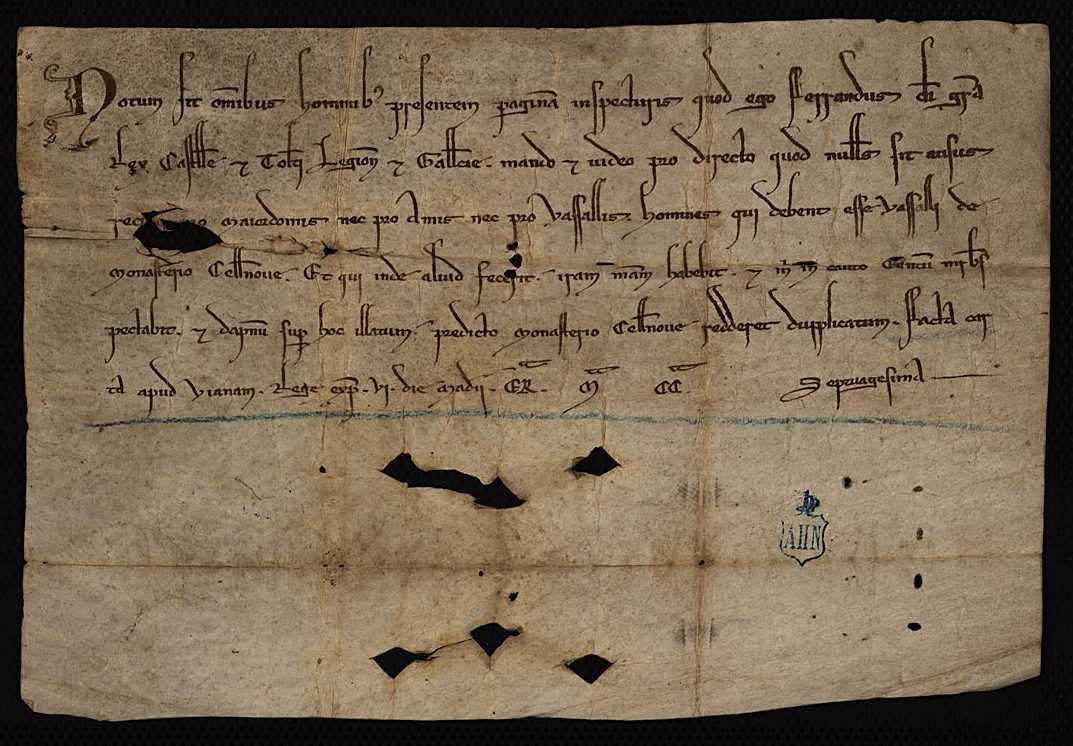 Notum sit om̄ibus hominib' presentem paginā inspecturis quod ego fferrandus di gra
Rex Castelle. et Tolti Legion̄ et Gallecie. mando et uideo pro directo quod nulls sit ausus
maiordomis nec pro amis nec pro vassallis. homines qui debent esse vassalli de
monasterio Cellenoue. Et qui inde aliud fecerit. iram meam habebit. et in canto Centū mrbs
pectabit. et dapnū sup hoc illatum. predicto monasterio Cellenoue redderet dupplicatum. ffacta car
ta apud vianam. Rege exp. vi. die madii. ER. M CC. Septuagesima
AHN